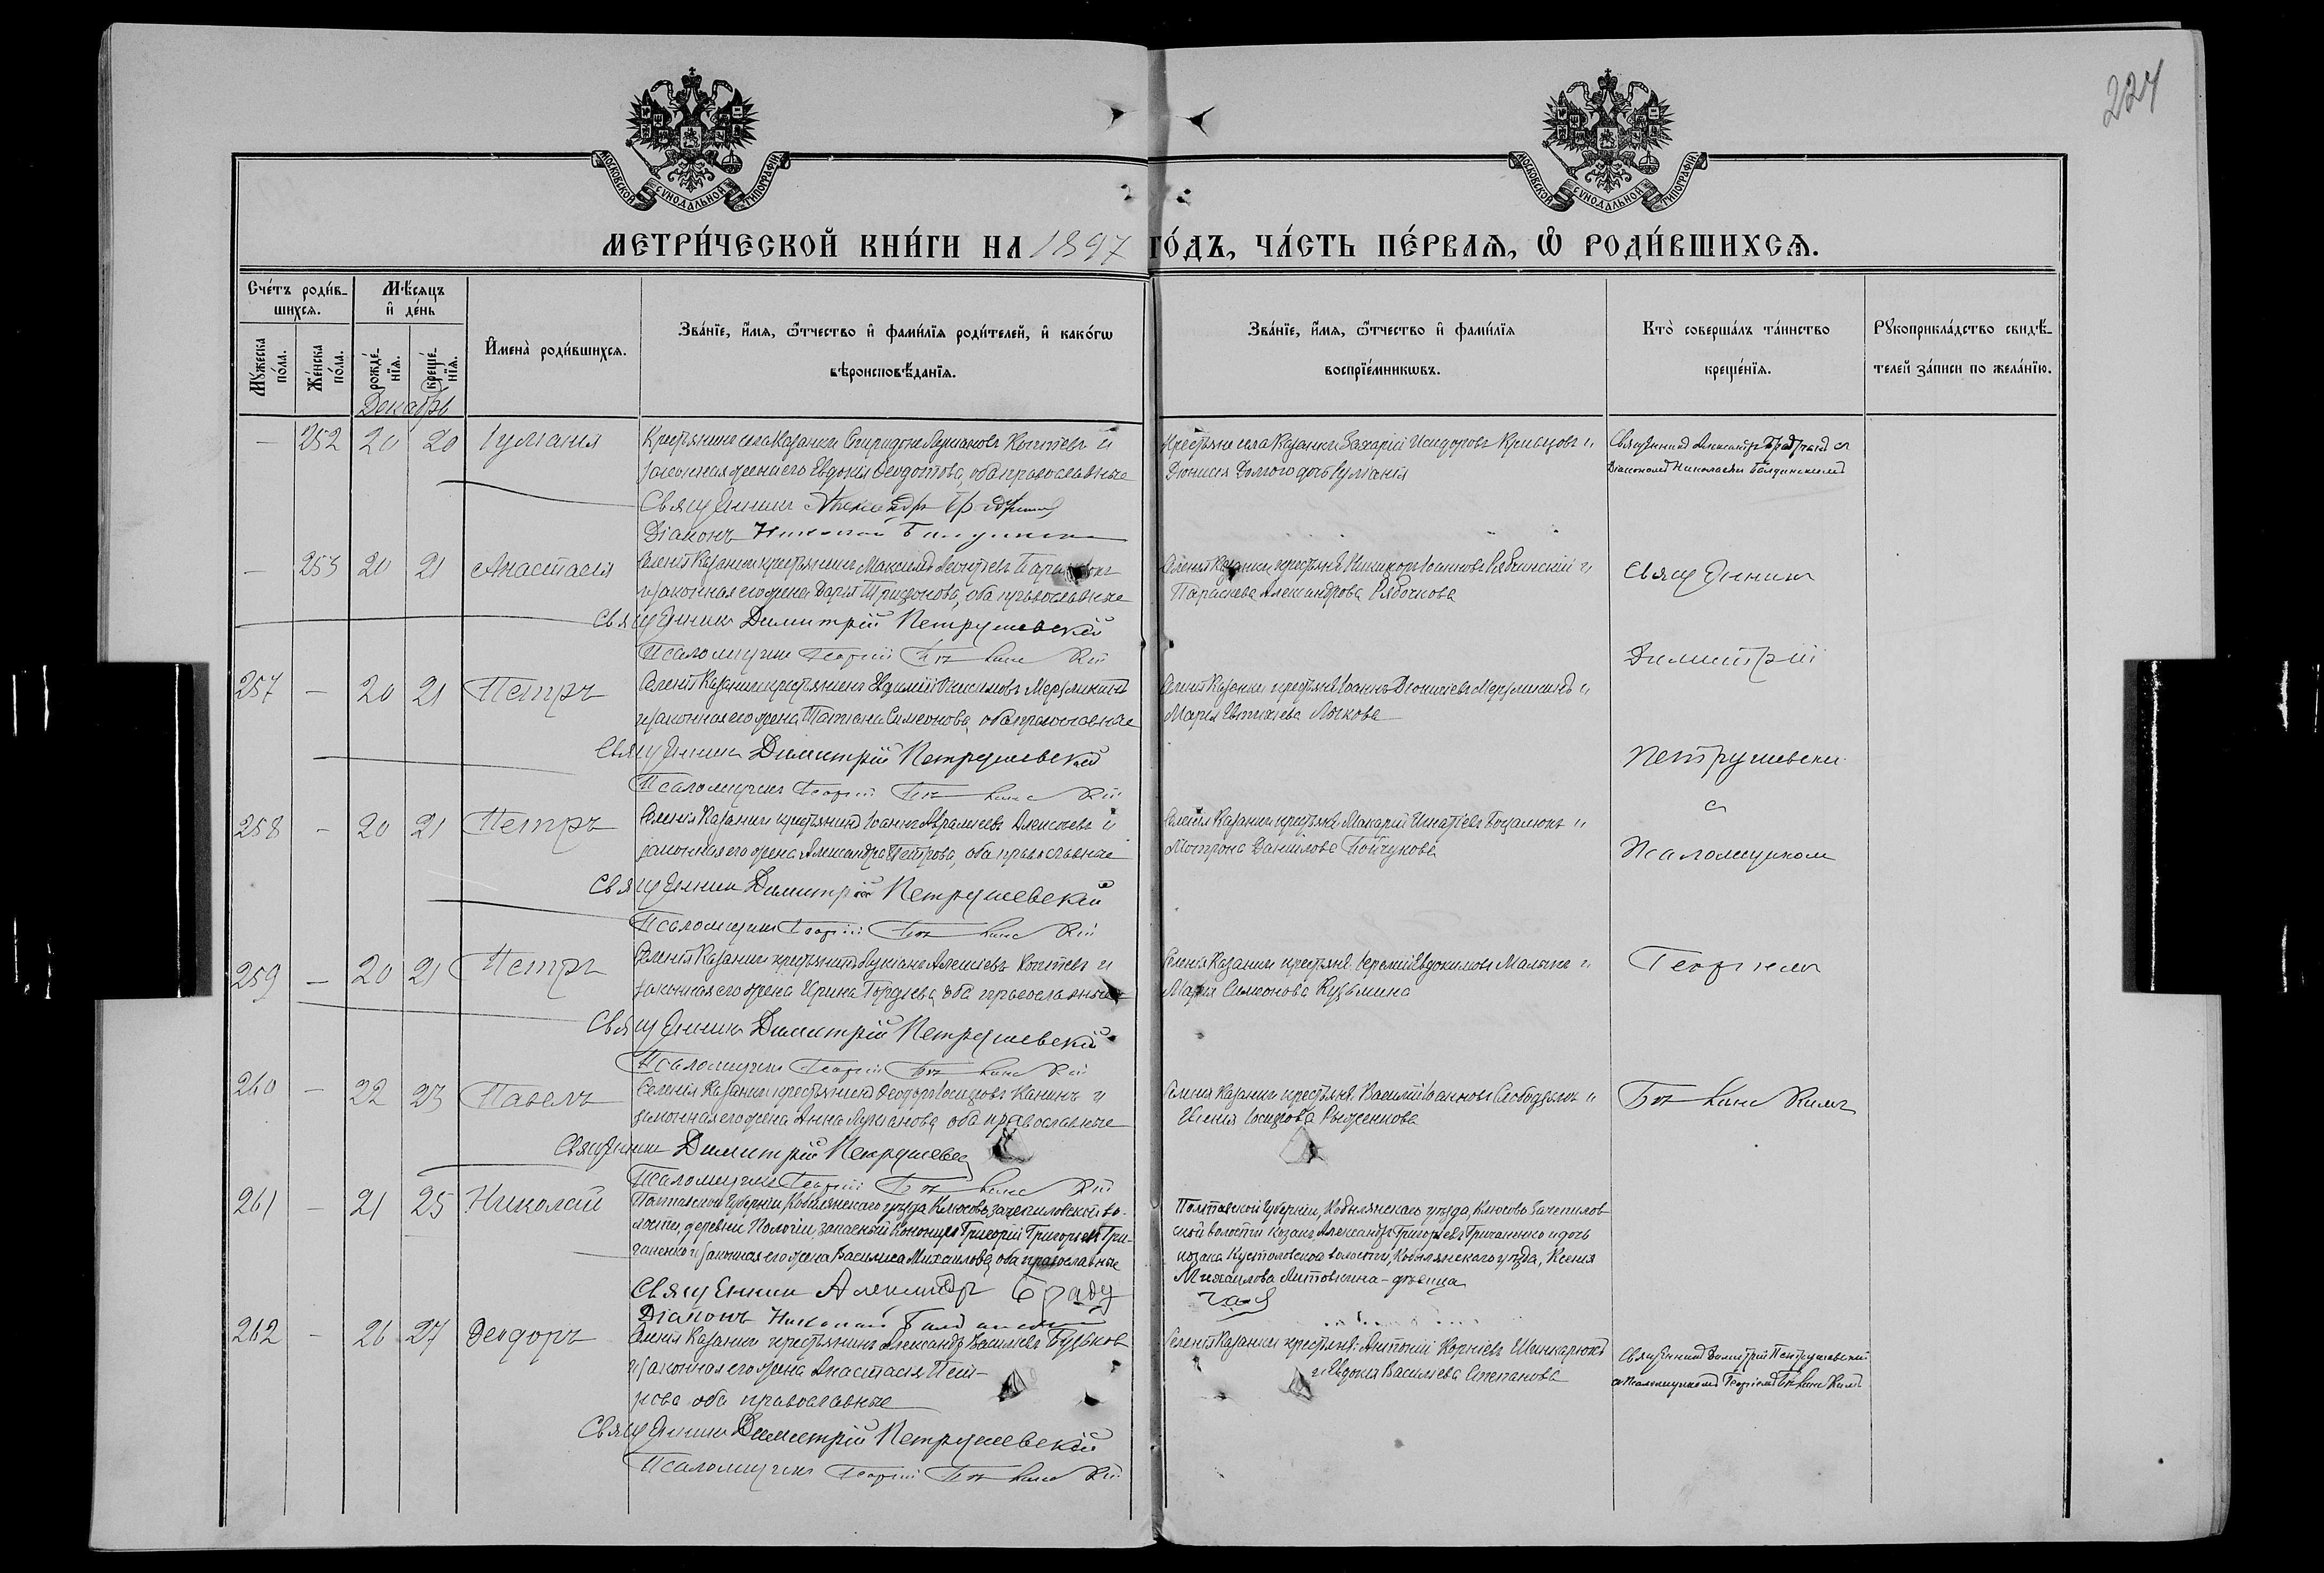 227
МОСКОВСКОЙ СУНОДАЛЬНОЙ ТИПОГРАФІИ
МОСКОВСКОЙ СУНОДАЛЬНОЙ ТИПОГРАФІИ
МЕТРИ́ЧЕСКОЙ КНИ́ГИ НА 1897 ГО́ДЪ, ЧА́СТЬ ПЕ́РВАѦ, Ѡ РОДИ́ВШИХСѦ.
Сче́тъ роди́в-
шихсѧ.
Мѣ́сяцъ
и҆ де́нь
Му́жеска
по́ла.
Же́нска
по́ла.
рожде́-
нїѧ.
креще́-
нїѧ.
Декабрь
И҆мена̀ роди́вшихсѧ.
Зва́нїе, и҆́мѧ, ѻ҆́тчество и҆ фами́лїѧ роди́телей, и҆ како́гѡ
вѣроисповѣ́данїѧ.
Зва́нїе, и҆́мѧ, ѻ҆́тчество и҆ фами́лїѧ
воспрїе́мникѡвъ.
Кто̀ соверша́лъ та́инство
креще́нїѧ.
Рꙋкоприкла́дство свидѣ́-
телей за́писи по жела́нїю.
— 252 20 20 Іуліанія
Крестьянинъ села Казанки Спиридонъ Лукіановъ Коптевъ и
законная жена его Евдокія Ѳеодотова, оба православные
Священникъ Александръ
Діаконъ Николай
Крестьяне села Казанки Захарій Исидоровъ Кривцовъ и
Діонисія Долгого дочь Іуліанія
Священникъ Александръ съ
Діакономъ Николаемъ Балдинскимъ
— 253 20 21 Анастасія
Селенія Казанки крестьянинъ Максимъ Леонтіевъ
и законная его жена Дарія Трифонова, оба православные
Священникъ Димитрій Петрушевскій
Псаломщикъ Георгій
Селенія Казанки крестьяне Никифоръ Іоанновъ Рябчинскій и
Параскева Александрова Рябочкова
Священникъ
Димитрій
Петрушевскій
съ
Псаломщикомъ
Георгіемъ
257 — 20 21 Петръ
Селенія Казанки крестьянинъ Евдокимъ Онисимовъ Мерзликинъ
и законная его жена Татіана Симеонова, оба православные
Священникъ Димитрій Петрушевскій
Псаломщикъ Георгій
Селенія Казанки крестьяне Іоаннъ Діонисіевъ Мерзликинъ и
Марія Евтихіева Лычкова
258 — 20 21 Петръ
Селенія Казанки крестьянинъ Іоаннъ Авраміевъ Алексѣевъ и
законная его жена Александра Петрова, оба православные
Священникъ Димитрій Петрушевскій
Псаломщикъ Георгій
Селенія Казанки крестьяне Макарій Игнатіевъ Боцалюкъ и
Мотрона Даніилова Бойчукова
259 — 20 21 Петръ
Селенія Казанки крестьянинъ Лукіанъ Алексіевъ Коптевъ и
законная его жена Ирина Гордіева, оба православные
Священникъ Димитрій Петрушевскій
Псаломщикъ Георгій
Селенія Казанки крестьяне Сергій Евдокимовъ Малыхъ и
Марія Симеонова Кузьмина
260 — 22 23 Павелъ
Селенія Казанки крестьянинъ Ѳеодоръ Іосифовъ Канинъ и
законная его жена Анна Лукіанова, оба православные
Священникъ Димитрій Петрушевскій
Псаломщикъ Георгій
Селенія Казанки крестьяне Василій Іоанновъ Слободянъ и
Евгенія Іосифова Рыженкова
261 — 21 25 Николай
Полтавской губерніи, Кобелякскаго уѣзда Клюсово-Зачепиловской во-
лости, деревни Пологи, запасный Григорій Григорьевъ Гри-
чаненко и законная его жена Василиса Михаилова, оба православные
Священникъ Александръ
Діаконъ Николай
Полтавской губерніи, Кобелякскаго уѣзда, Клюсово-Зачепилов-
ской волости козакъ Александръ Григорьевъ Гричаненко и дочь
козака Кустоловской волости, Кобелякскаго уѣзда, Ксенія
Михаилова Литовкина - дѣвица
262 — 26 27 Ѳеодоръ
Селенія Казанки крестьянинъ Александръ Василіевъ
и законная его жена Анастасія Пет-
рова оба православные
Священникъ Димитрій Петрушевскій
Псаломщикъ Георгій
Селенія Казанки крестьяне: Антоній Корніевъ Шинкарюкъ
и Евдокія Василіева Степанова
Священникъ Димитрій Петрушевскій
съ Псаломщикомъ Георгіемъ